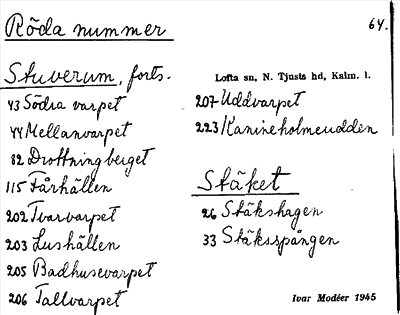 Röda nummer
64.
Stuverum, forts.
43 Södra varpet
44 Mellanvarpet
82 Drottningberget
115 Fårhällen
202 Tvarvarpet
203 Lushällen
205 Badhusevarpet
206 Tallvarpet
Lofta sn, N. Tjusts hd, Kalm. l.
207 Uddvarpet
223 Kanineholmeudden
Stäket
26 Stäkshagen
33 Stäksspången
Ivar Modéer 1945